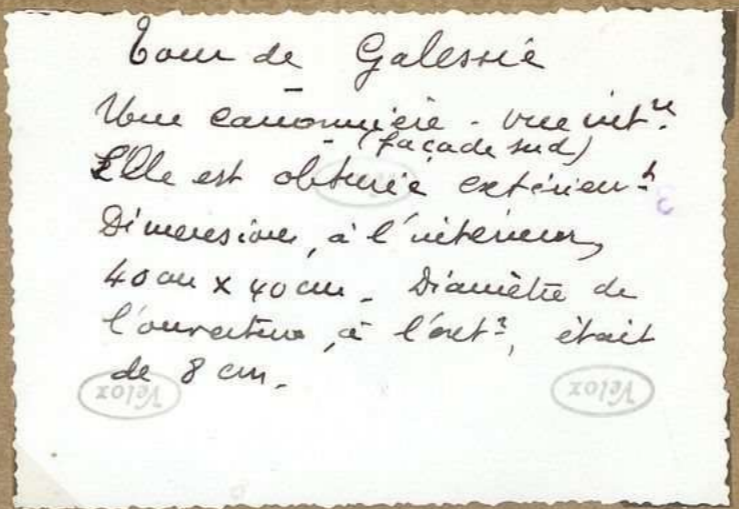 Tour de Galessie
Une canonnière - vue intre
(façade sud)
Elle est obturée extérieurt
Dimensions, à l'intérieur,
40 cm x 40 cm. Diamètre de
l'ouverture, à l'extr, était
de 8 cm.
Velox
Velox